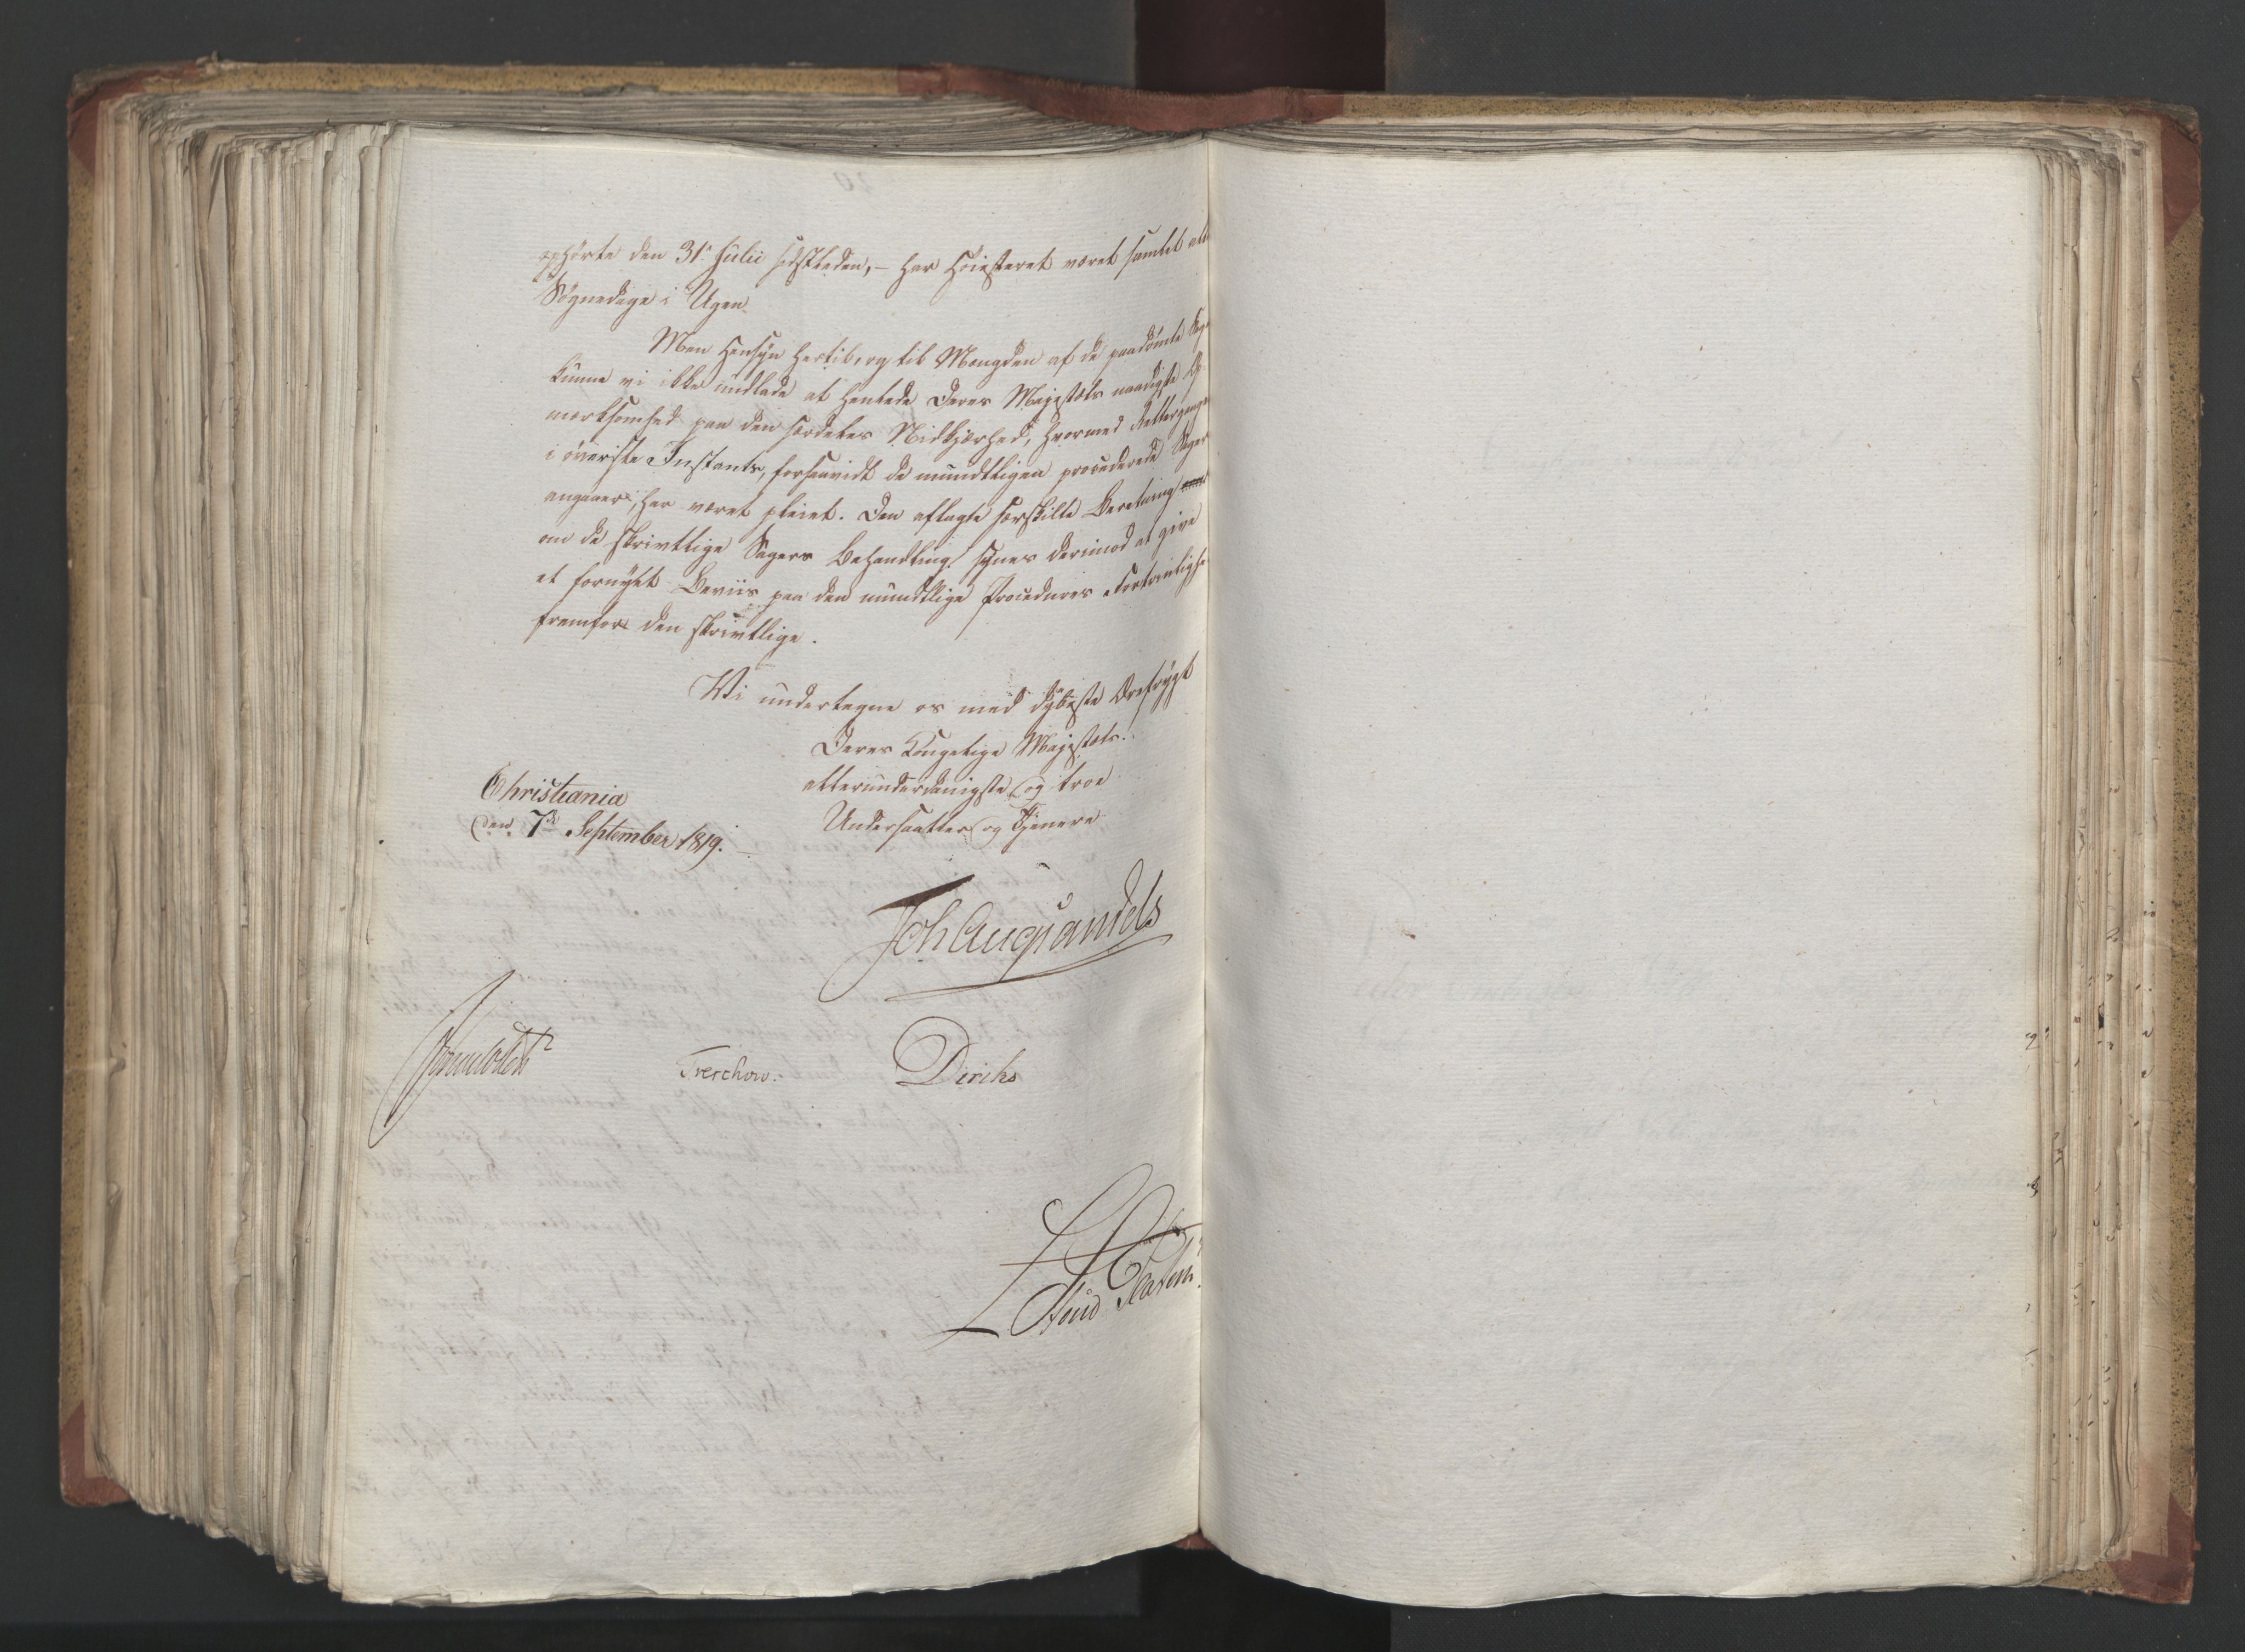 ophørte den 31te Julii sidstleden, – har Høiesteret været samlet alle
Søgnedage i Ugen.
Men Hensyn hertil, og til Mængden af de paadømte Sager
kunne vi ikke undlade at henlede Deres Majestæts naadigste Op-
mærksomhed paa den særdeles Nidkjærhed, hvormed Rettergangen
i øverste Instants, forsaavidt de mundtligen procederede Sager
angaaer, har været pleiet. Den aflagte særskilte Beretning
om de skrivtlige Sagers Behandling synes derimod at give
et fornyet Beviis paa den mundtlige Procedures Fortrinlighed
fremfor den skrivtlige.
Vi undertegne os med dybeste Ærefrygt
Deres Kongelige Majestæts
allerunderdanigste og troe
Undersaatter og Tjenere
Christiania
den 7de September 1819.
Joh Aug Sandels
Treschow.
Diriks